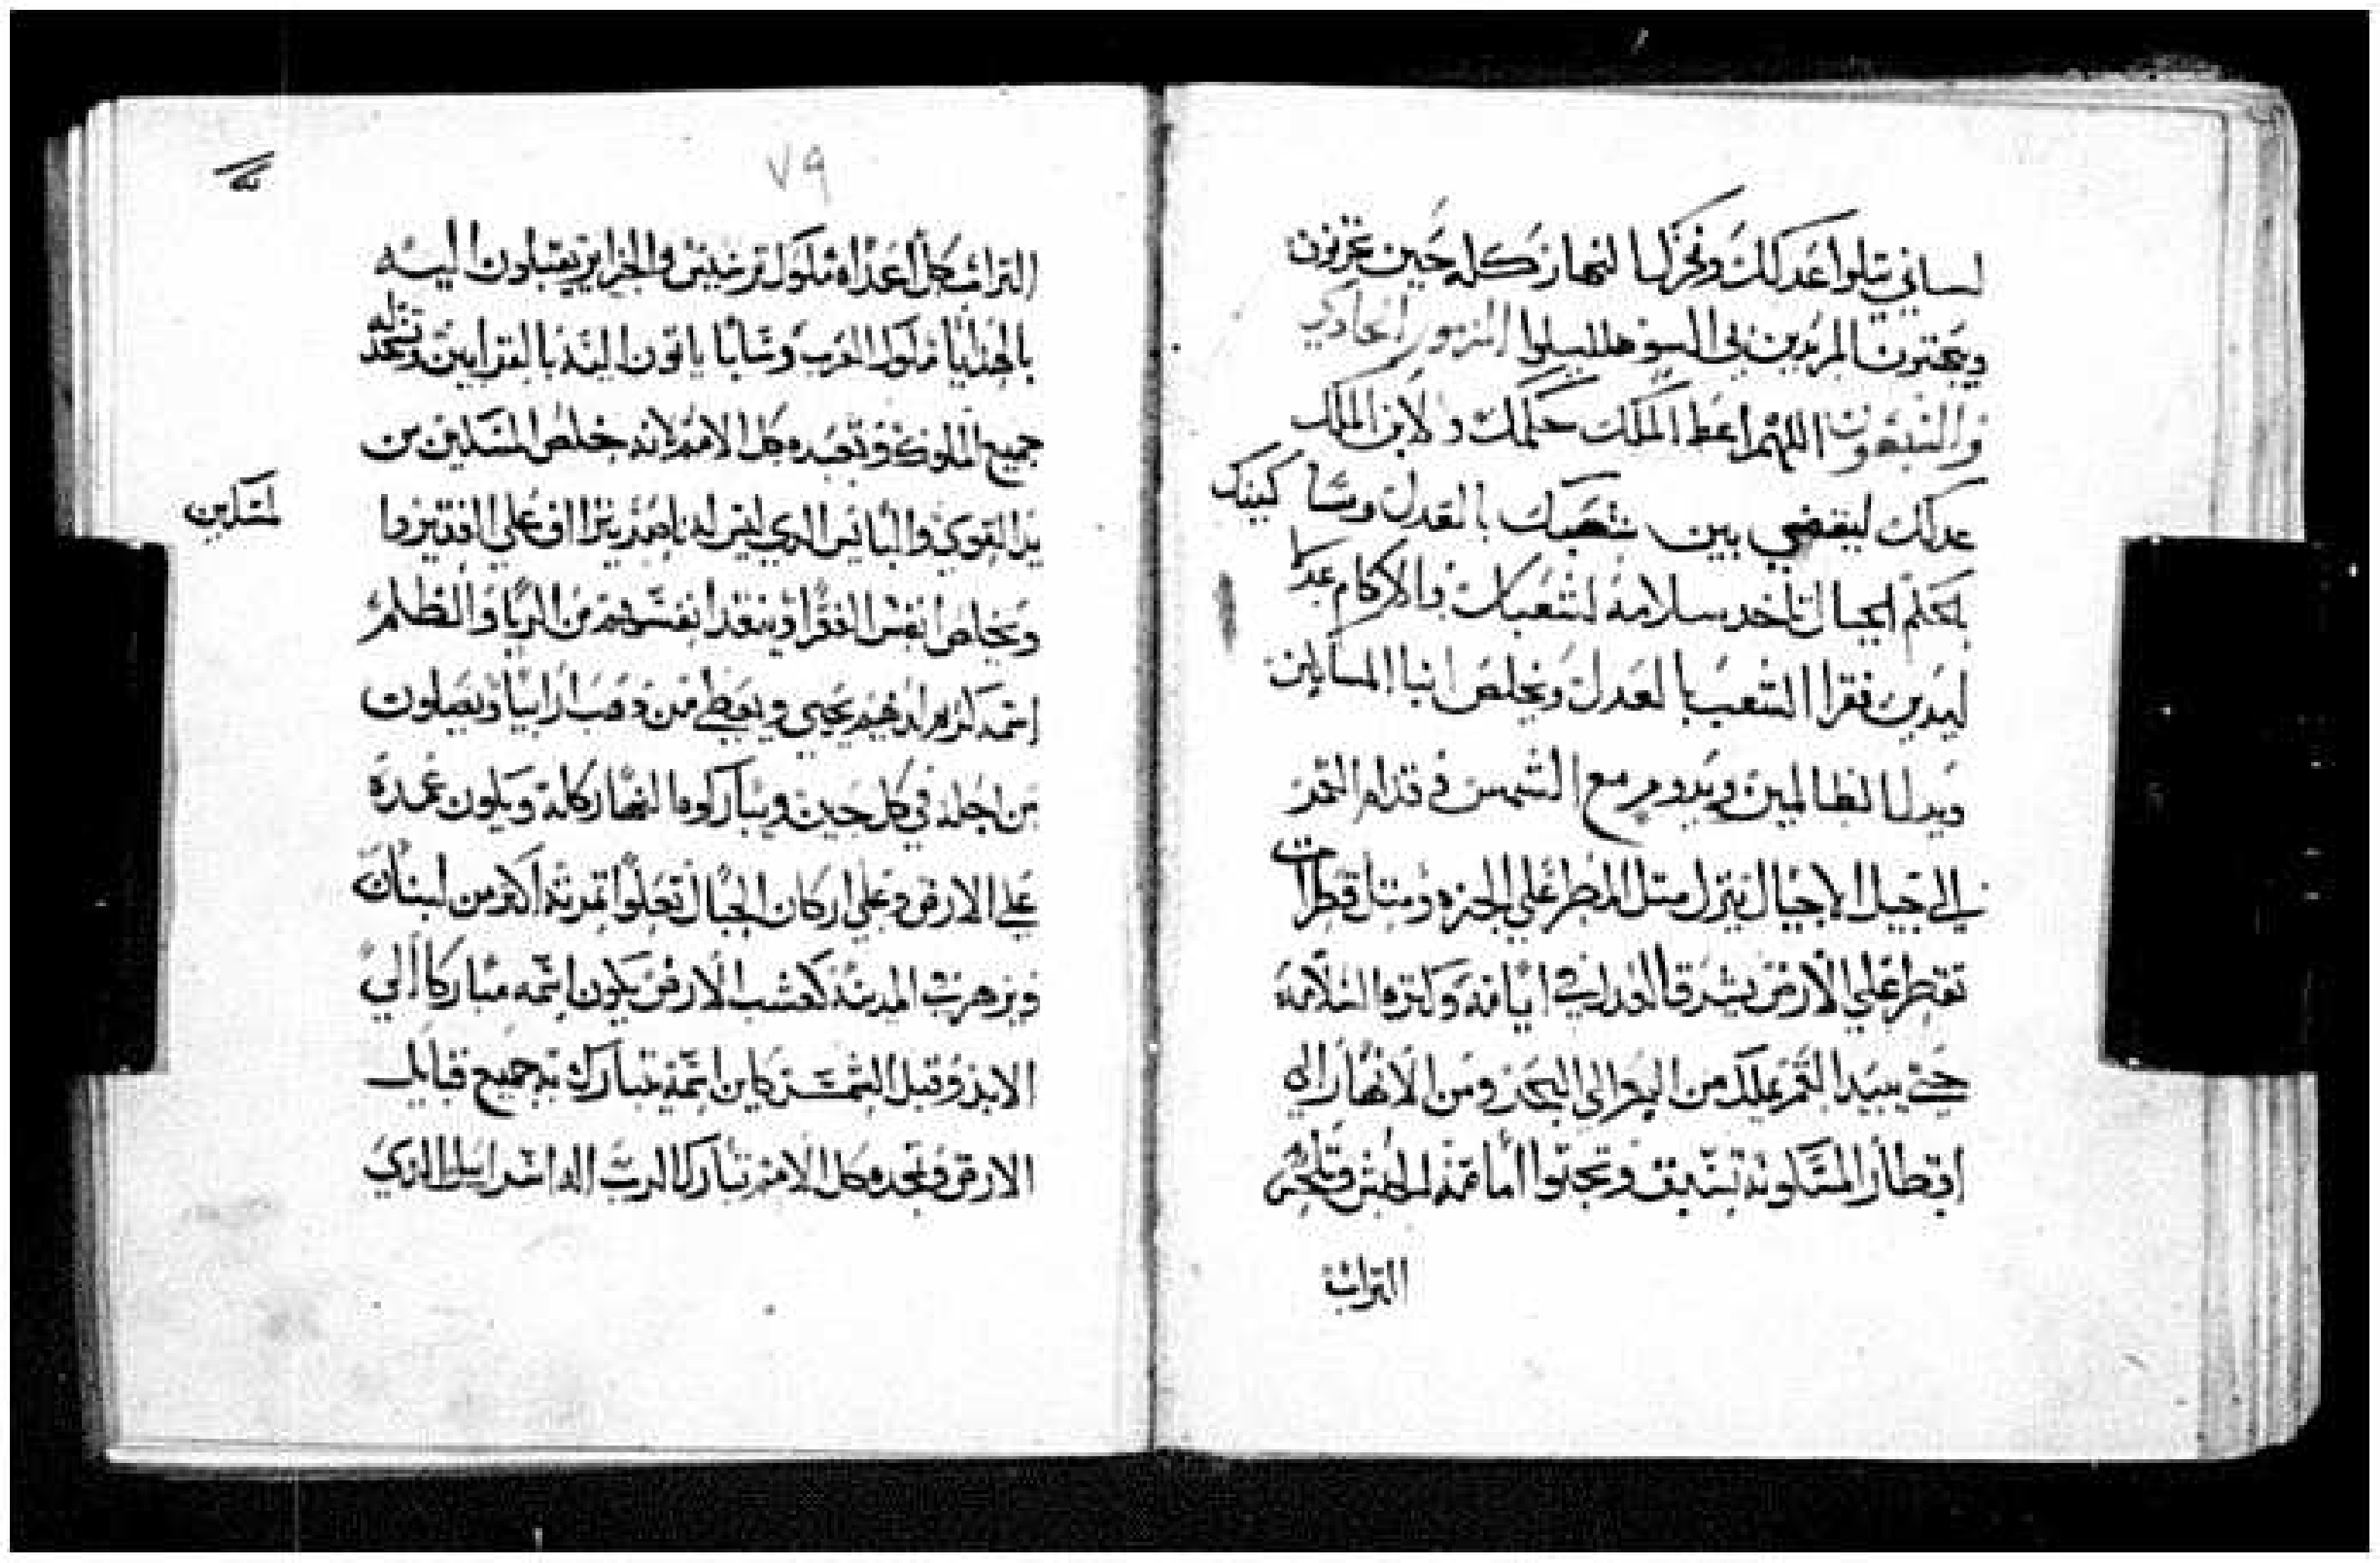 لساني يتلوا عدلك وفخرك النهار كله حين يخزون
ويجتون المريدين لي السو هلليلويا المزمور الحادي
والسبعون اللهم اعط الملك حكمك ولابن الملك
عدلك ليقضي بين شعبك بالعدل ومساكينك
بالحكم الجبال تاخد سلامة لشعبك والاكام عدلا
ليدين فقرا الشعب بالعدل ويخلص ابنا المساكين
ويدل الظالمين ويدوم مع الشمس وقدام القمر
الي جيل الاجيال ينزل متل المطر علي الجزه ومتل قطرات
تقطر علي الارض يشرق العدل في ايامه وكتره السلامة
حتي يبيد القمر يملك من البحر الي البحر ومن الانهار الي
اقطار المسكونة تسبق وتجتوا امامه الحبش وتلحس
التراب
٧٩
التراب كل اعداه ملوك ترسيس والجزاير يقبلون اليه
بالهدايا ملوك العرب وسابا ياتون اليه بالقرابين وتسجد له
جميع الملوك وتعبده كل الامم لانه خلص المسكين من
يد القوي والبايس الدي ليس له ناصر يتراف علي الفقير
مسكين
ويخلص انفس الفقرا وينقد انفسهم من الربا والظلم
اسمه كريم لديهم يحيي ويعطي من دهب ارابيا ويصلون
من اجله في كل حين ويباركوه النهار كله ويكون عمدة
علي الارض وعلي اركان الجبال تعلوا تمرته اكتر من لبنان
ويزهر في المدينة كعشب الارض يكون اسمه مباركا الي
الابد وقبل الشمس كاين اسمه يتبارك به جميع قبايل
الارض وتمجده كل الامم تبارك الرب اله اسراييل الدي